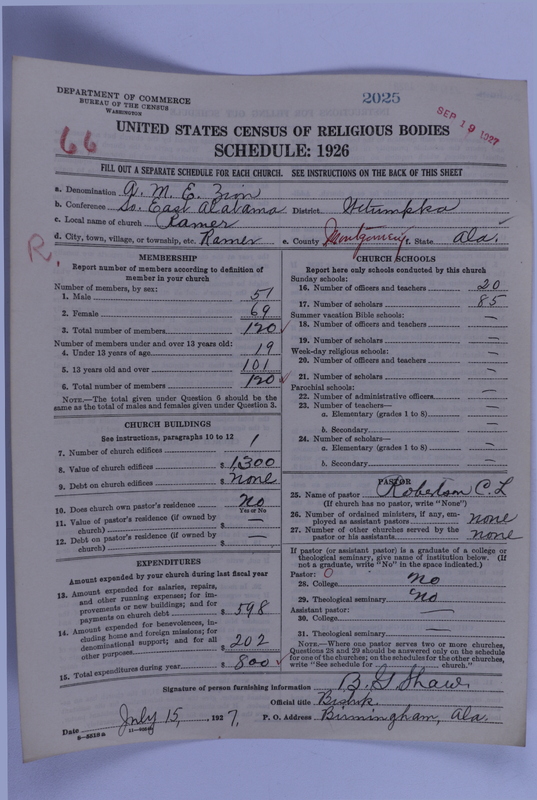 DEPARTMENT OF COMMERCE
BUREAU OF THE CENSUS
WASHINGTON
2025
SEP 19 1927
66
UNITED STATES CENSUS OF RELIGIOUS BODIES
SCHEDULE: 1926
FILL OUT A SEPARATE SCHEDULE FOR EACH CHURCH. SEE INSTRUCTIONS ON THE BACK OF THIS SHEET
a. Denomination A. M. E. Zion
b. Conference So. East Alabama District Wetumpka
c. Local name of church Ramer
d. City, town, village, or township, etc. Ramer e. County Montgomery f. State Ala.
R.
MEMBERSHIP
Report number of members according to definition of member in your church
Number of members, by sex:
1. Male 51
2. Female 69
3. Total number of members 120
Number of members under and over 13 years old:
4. Under 13 years of age 19
5. 13 years old and over 101
6. Total number of members 120
NOTE.—The total given under Question 6 should be the same as the total of males and females given under Question 3.
CHURCH BUILDINGS
See instructions, paragraphs 10 to 12
7. Number of church edifices 1
8. Value of church edifices $ 1,300
9. Debt on church edifices $ none
10. Does church own pastor's residence No
Yes or No
11. Value of pastor's residence (if owned by church) $ —
12. Debt on pastor's residence (if owned by church) $ —
EXPENDITURES
Amount expended by your church during last fiscal year
13. Amount expended for salaries, repairs, and other running expenses; for improvements or new buildings; and for payments on church debt $ 598
14. Amount expended for benevolences, including home and foreign missions; for denominational support; and for all other purposes $ 202
15. Total expenditures during year $ 800
CHURCH SCHOOLS
Report here only schools conducted by this church
Sunday schools:
16. Number of officers and teachers 20
17. Number of scholars 85
Summer vacation Bible schools:
18. Number of officers and teachers —
19. Number of scholars —
Week-day religious schools:
20. Number of officers and teachers —
21. Number of scholars —
Parochial schools:
22. Number of administrative officers —
23. Number of teachers—
a. Elementary (grades 1 to 8) —
b. Secondary —
24. Number of scholars—
a. Elementary (grades 1 to 8) —
b. Secondary —
PASTOR
25. Name of pastor Robertson C. L
(If church has no pastor, write "None")
26. Number of ordained ministers, if any, employed as assistant pastors none
27. Number of other churches served by the pastor or his assistants none
If pastor (or assistant pastor) is a graduate of a college or theological seminary, give name of institution below. (If not a graduate, write "No" in the space indicated.)
Pastor: 0
28. College No
29. Theological seminary No
Assistant pastor:
30. College —
31. Theological seminary —
NOTE.—Where one pastor serves two or more churches, Questions 28 and 29 should be answered only on the schedule for one of the churches; on the schedules for the other churches, write "See schedule for ............ church."
Signature of person furnishing information B. G Shaw
Official title
P. O. Address Birmingham, Ala.
Date July 15, 1927.